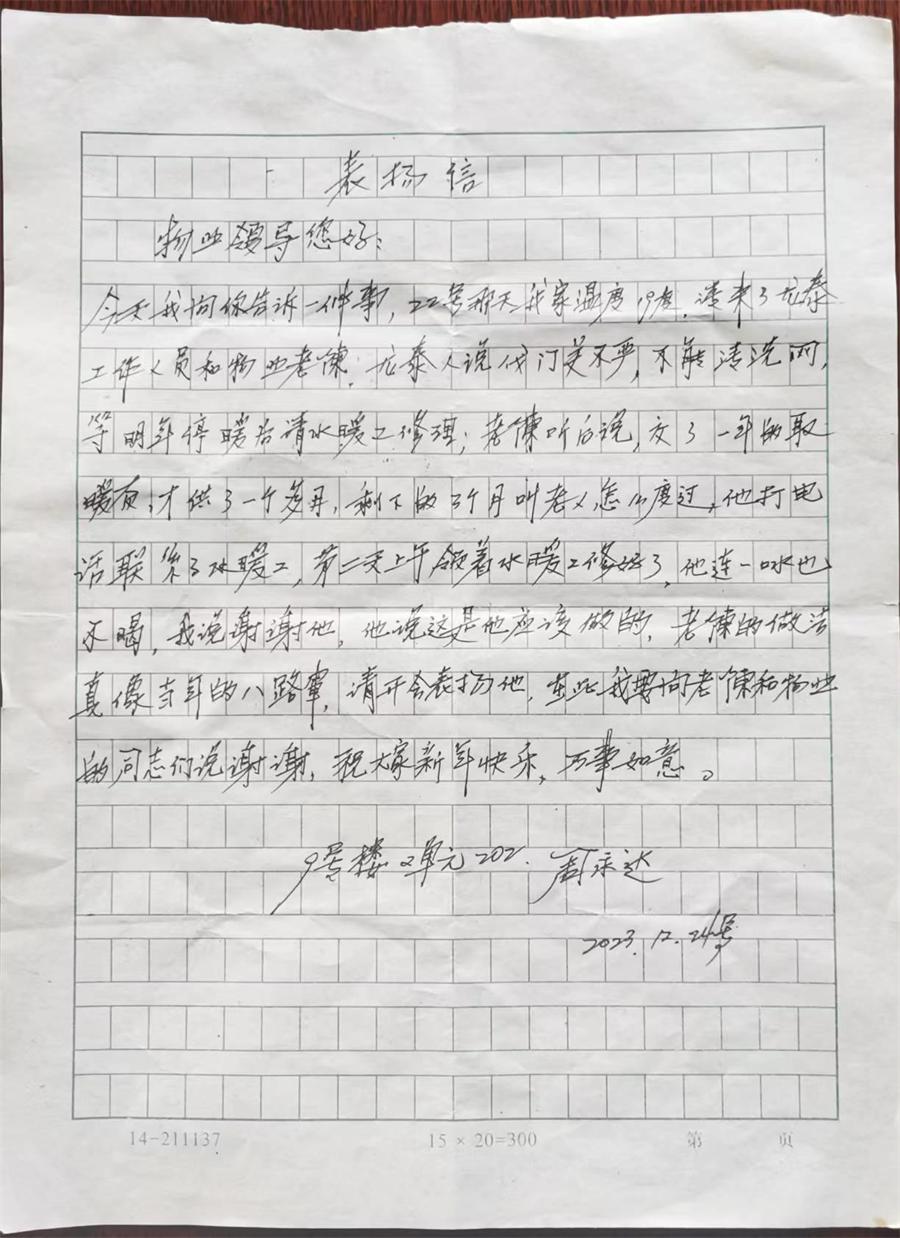 表扬信
物业领导您好:
今天我向你告诉一件事,22号那天我家温度19度,请来了龙泰
工作人员和物业老陳,龙泰人说伐门关不严,不能清洗网,
等明年停暖后请水暖工修理;老陳听后说,交了一年的取
暖费,才供了一个多月,剩下的3个月叫老人怎么度过,他打电
话联系了水暖工,第二天上午领着水暖工修好了,他连一口水也
不喝,我说谢谢他,他说这是他应该做的,老陳的做法
真像当年的八路軍,请开会表扬他,在此我要向老陳和物业
的同志们说谢谢,祝大家新年快乐,万事如意。
9号楼2单元202. 周永达
2023.12.24号
14-211137 15×20=300 第 页